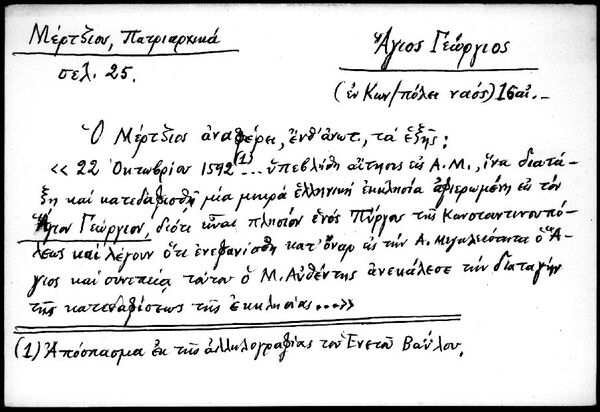 Μέρτζιου, Πατριαρχικά
σελ. 25.
Ἅγιος Γεώργιος
(ἐν Κων/πόλει ναός) 16 αἰ. –
Ὁ Μέρτζιος ἀναφέρει, ἔνθ' ἀνωτ., τὰ ἑξῆς:
« 22 Ὀκτωβρίου 1592 (1)... ὑπεβλήθη αἴτησις εἰς Α.Μ., ἵνα διατά-
ξῃ καὶ κατεδαφισθῇ μία μικρὰ ἑλληνικὴ ἐκκλησία ἀφιερωμένη εἰς τὸν
Ἅγιον Γεώργιον, διότι εἶναι πλησίον ἑνὸς Πύργου τῆς Κωνσταντινουπό-
λεως καὶ λέγουν ὅτι ἐνεφανίσθη κατ' ὄναρ εἰς τὴν Α. Μεγαλειότητα ὁ Ἅ-
γιος καὶ συνεπείᾳ τούτου ὁ Μ. Αὐθέντης ἀνεκάλεσε τὴν διαταγὴν
τῆς κατεδαφίσεως τῆς ἐκκλησίας...»
(1) Ἀπόσπασμα ἐκ τῆς ἀλληλογραφίας τοῦ Ἑνετοῦ Βαΐλου.